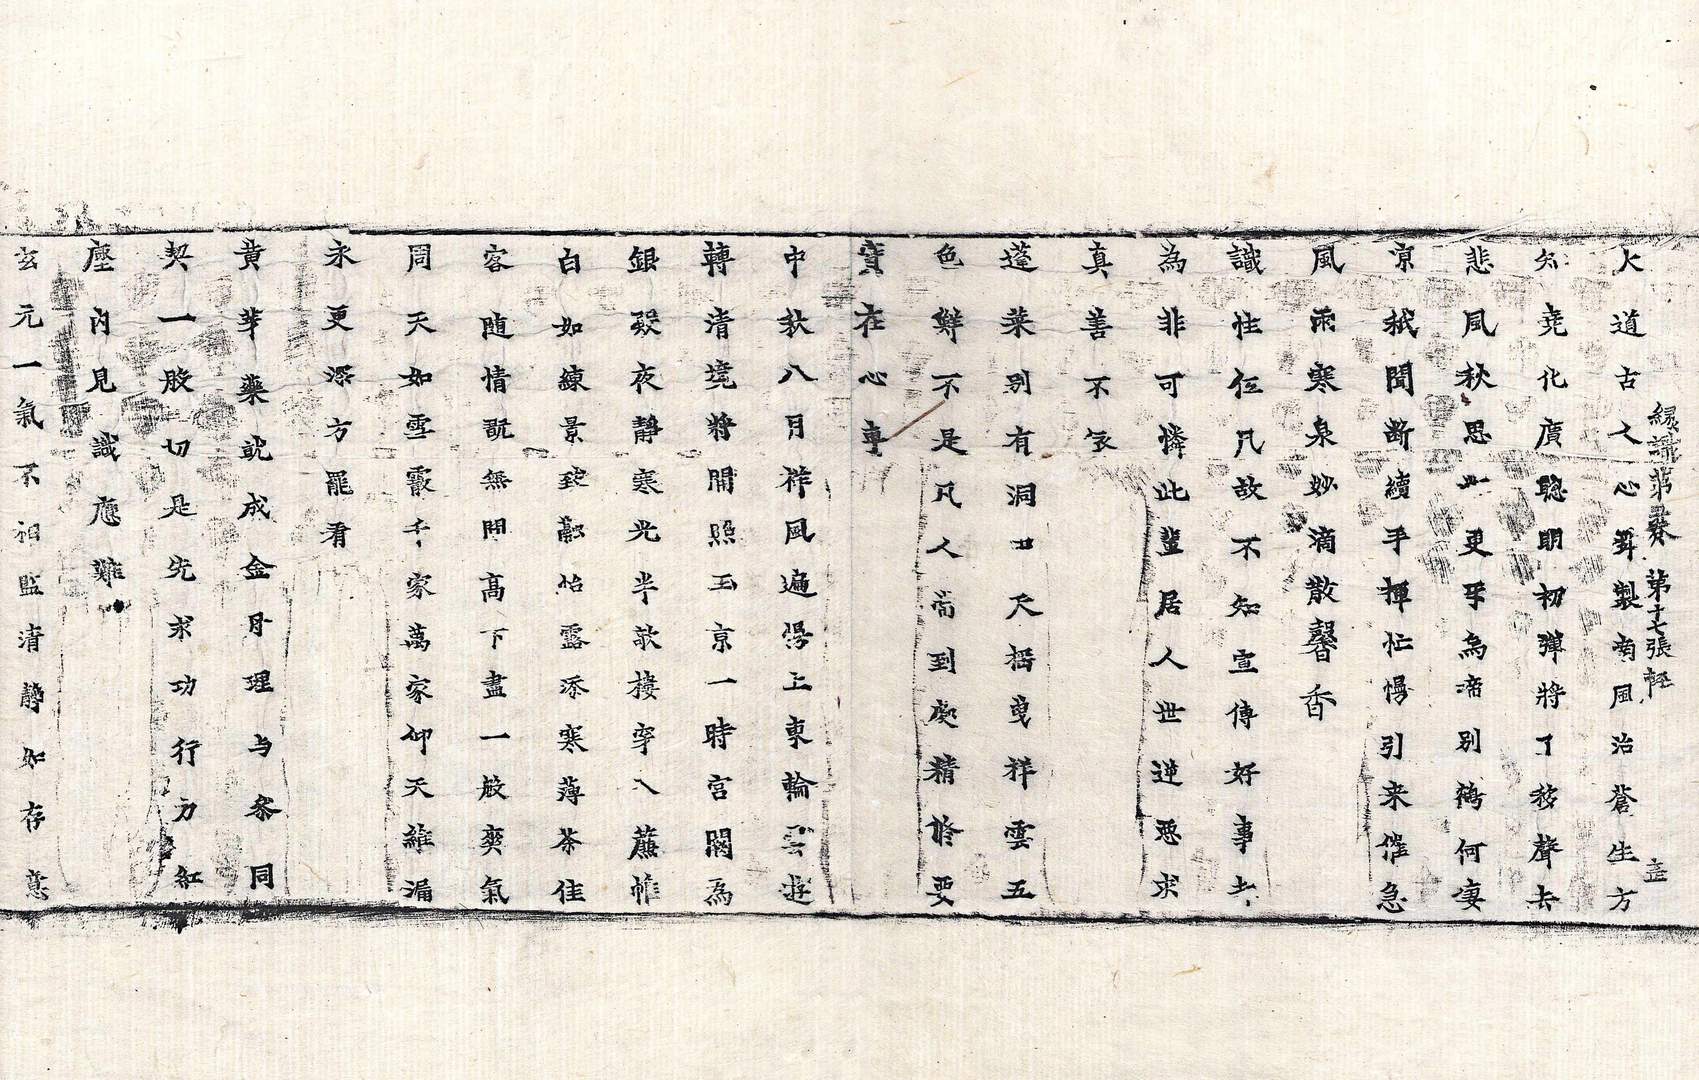 緣識第五 第十七張 輕
大道古人心斈製南風治蒼生方
知堯化廣聦明初彈將了移聲去
悲風秋思出更學烏啼別鶴何凄
凉秪聞斷續手揮忙慢引来催急
風雨寒泉妙滴散馨香
識性仁凡故不知宣傳好事去
為非可憐此輩居人世逆惡求
真善不冝
蓬萊别有洞中天揺曵祥雲五
色鮮不是凡人需到處精於要
寶在心專
中秋八月祥風遍陽上東輪雲遊
轉清境將開照玉京一時宮闕為
銀殿夜静寒光半敧樓穿入薦帷
白如練景致觀怡露添寒薄茶佳
客随情翫無間高下盡一般爽氣
周天如雪霰千家萬家仰天維漏
永更深方罷看
黄芽藥就成金丹理与叅同
契一般切是先求功行力紅
塵内見識應難
玄元一氣不相監清静如存意